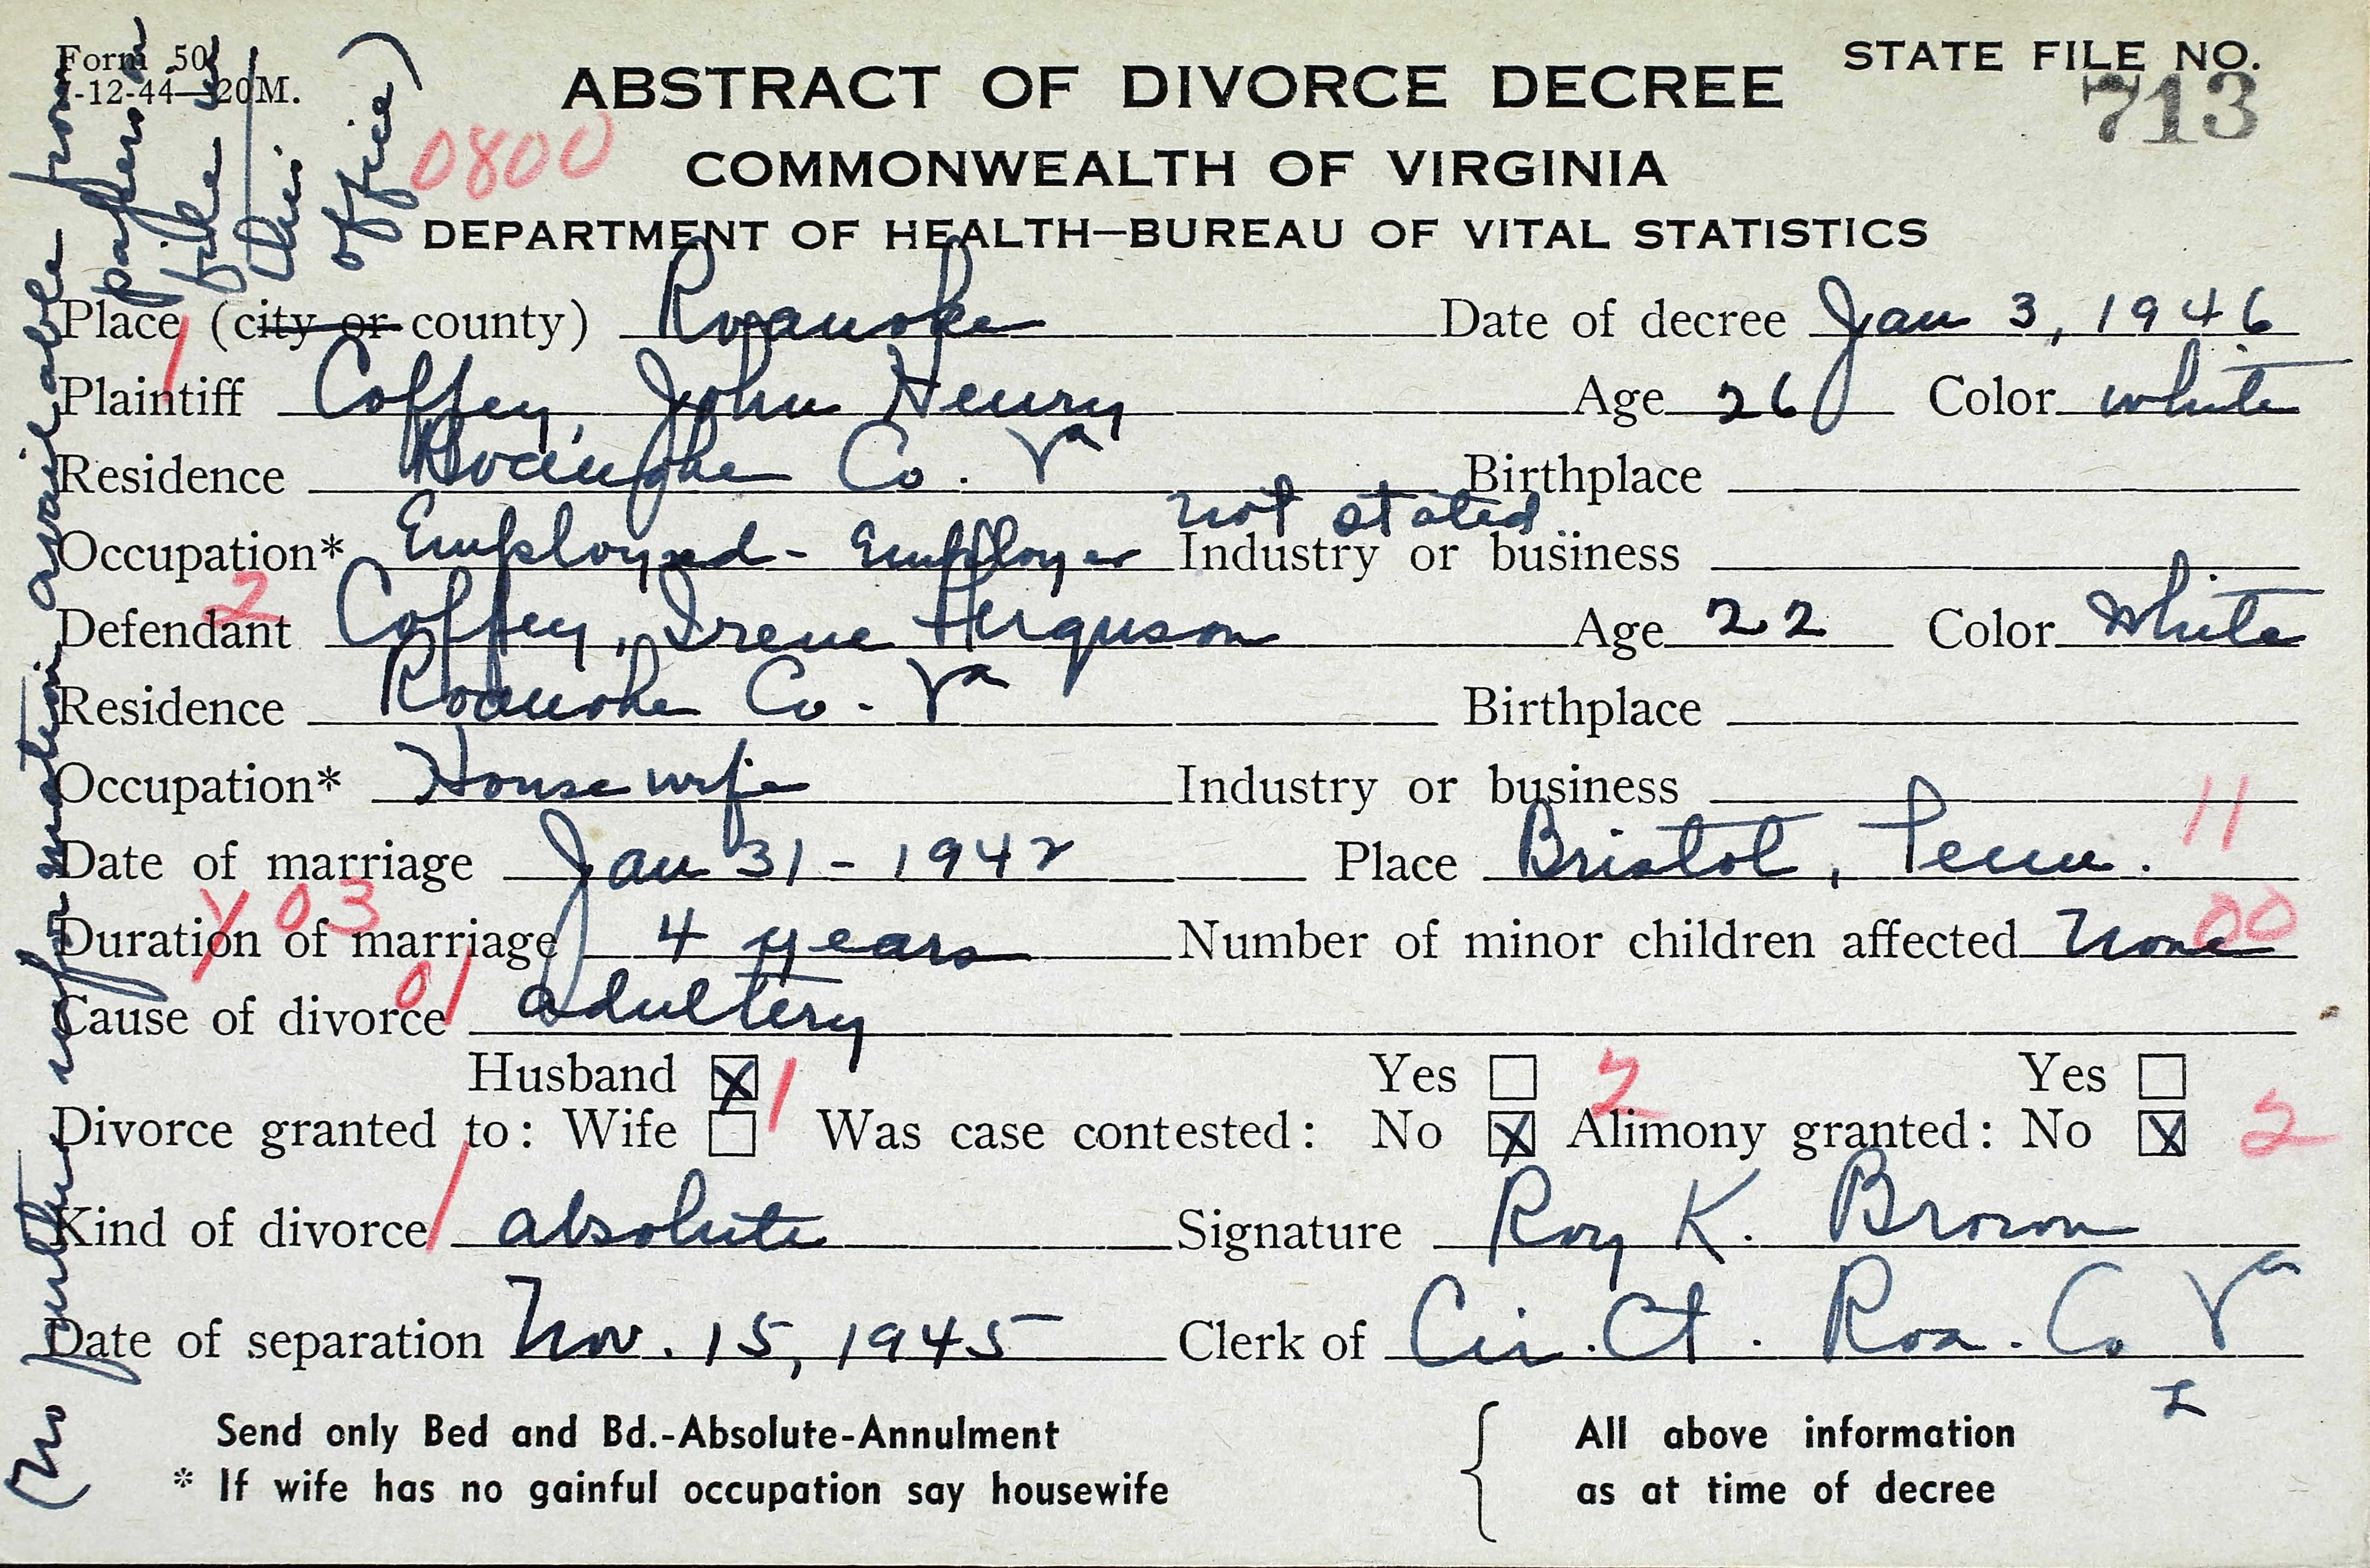 Form 50
-12-44—20M.
STATE FILE NO.
713
ABSTRACT OF DIVORCE DECREE
0800
COMMONWEALTH OF VIRGINIA
DEPARTMENT OF HEALTH—BUREAU OF VITAL STATISTICS
(No further information available from
papers on
file in
this
office)
Place (city or county) Roanoke Date of decree Jan 3, 1946
1
Plaintiff Coffey, John Henry Age 26 Color white
Residence Roanoke Co. Va Birthplace
not stated
Occupation* Employed - Employer Industry or business
2
Defendant Coffey, Irene Ferguson Age 22 Color White
Residence Roanoke Co. Va Birthplace
Occupation* Housewife Industry or business
Date of marriage Jan 31 - 1942 Place Bristol, Tenn. 11
Y 03
Duration of marriage 4 years Number of minor children affected None 00
01
Cause of divorce adultery
Husband X 1 Yes 2 Yes
Divorce granted to: Wife Was case contested: No X Alimony granted: No X 2
1
Kind of divorce absolute Signature Roy K. Brown
Date of separation Nov. 15, 1945 Clerk of Cir. Ct. Roa. Co Va
Send only Bed and Bd.-Absolute-Annulment
* If wife has no gainful occupation say housewife
All above information
as at time of decree